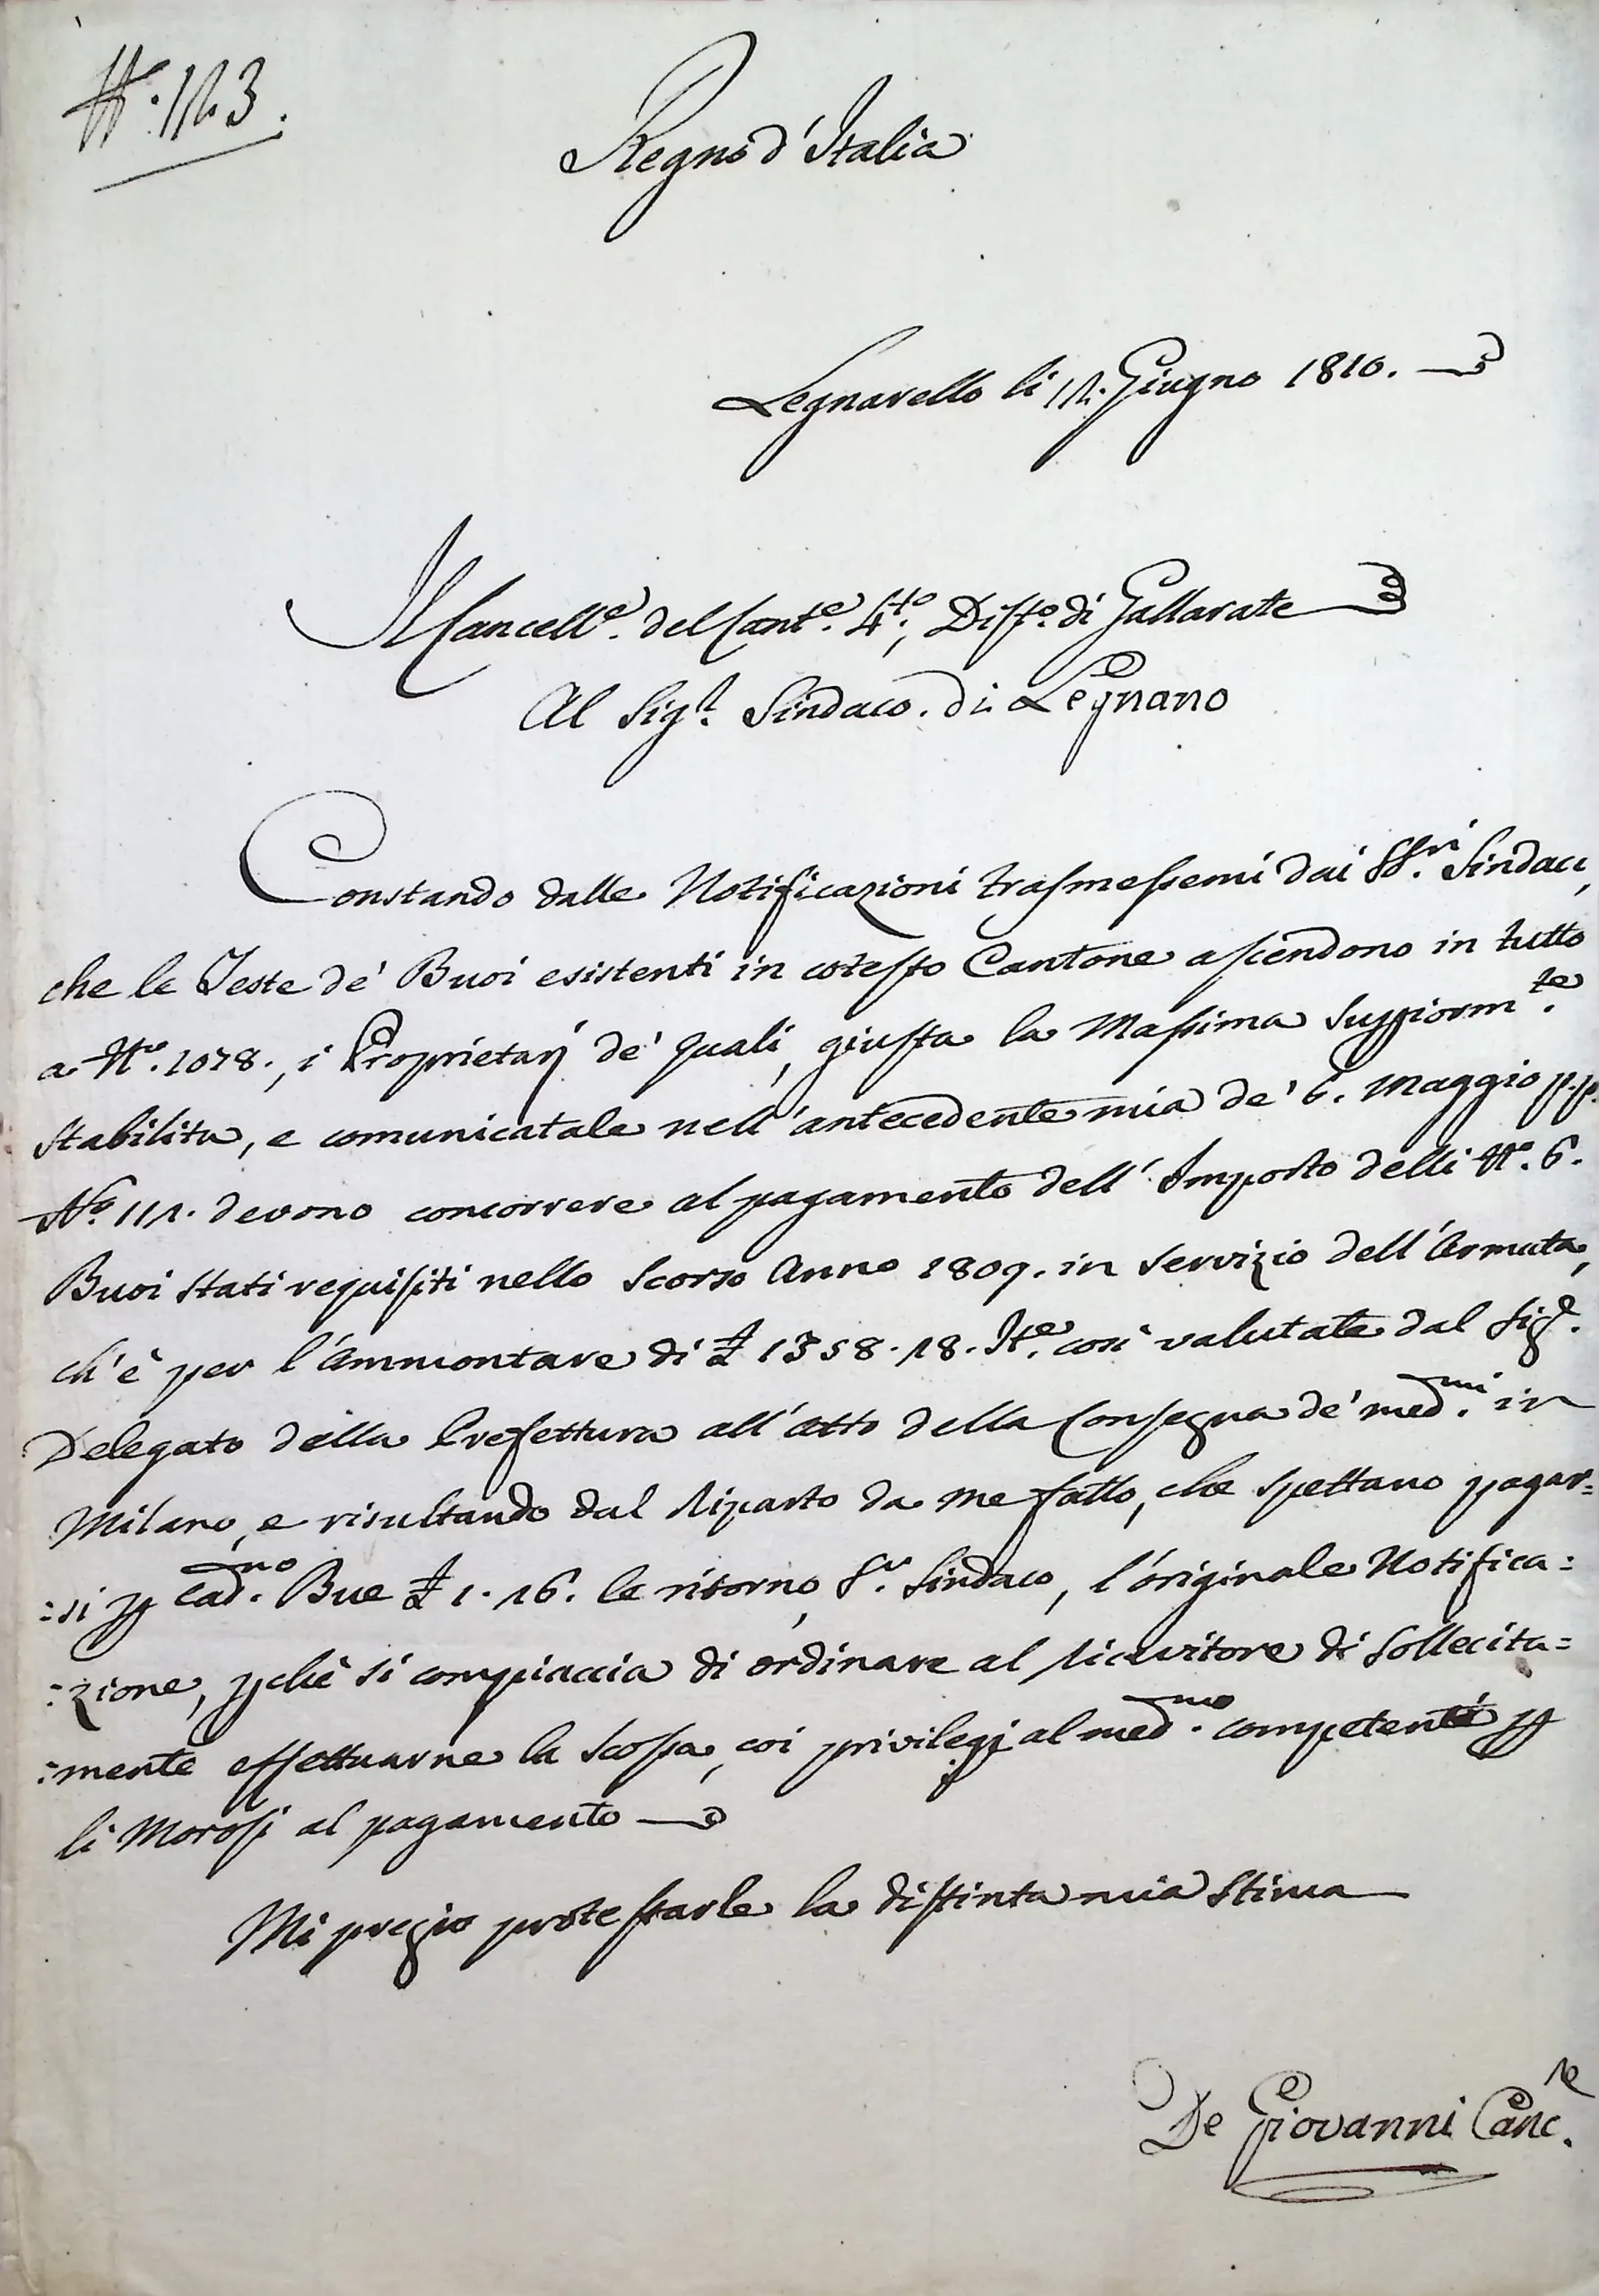 N.° 123.
Regno d'Italia
Legnarello li 12. Giugno 1810.
Il Cancell.e del Cant.e 4.to, Dist.o di Gallarate
Al Sig.r Sindaco di Legnano
Constando dalle Notificazioni trasmessemi dai SS.ri Sindaci,
che le Teste de' Buoi esistenti in cotesto Cantone ascendono in tutto
a N.° 1078., i Proprietarj de' quali, giusta la Massima Superiorm.te
stabilita, e comunicatale nell'antecedente mia de' 6. Maggio p.p.
N.° 111. devono concorrere al pagamento dell'Importo delli N.° 6.
Buoi stati requisiti nello scorso Anno 1809. in servizio dell'Armata,
ch'è per l'Ammontare di £ 1358.18. It.e così valutate dal Sig.r
Delegato della Prefettura all'atto della Consegna de' med.mi in
Milano, e risultando dal Riparto da me fatto, che spettano pagar=
=si p cad.no Bue £ 1.16. le ritorno, S.r Sindaco, l'originale Notifica=
=zione, pchè si compiaccia di ordinare al Ricevitore di sollecita=
=mente effettuarne la Scossa, coi privilegj al med.mo competenti p
li Morosi al pagamento
Mi pregio protestarle la distinta mia stima
De Giovanni Canc.re